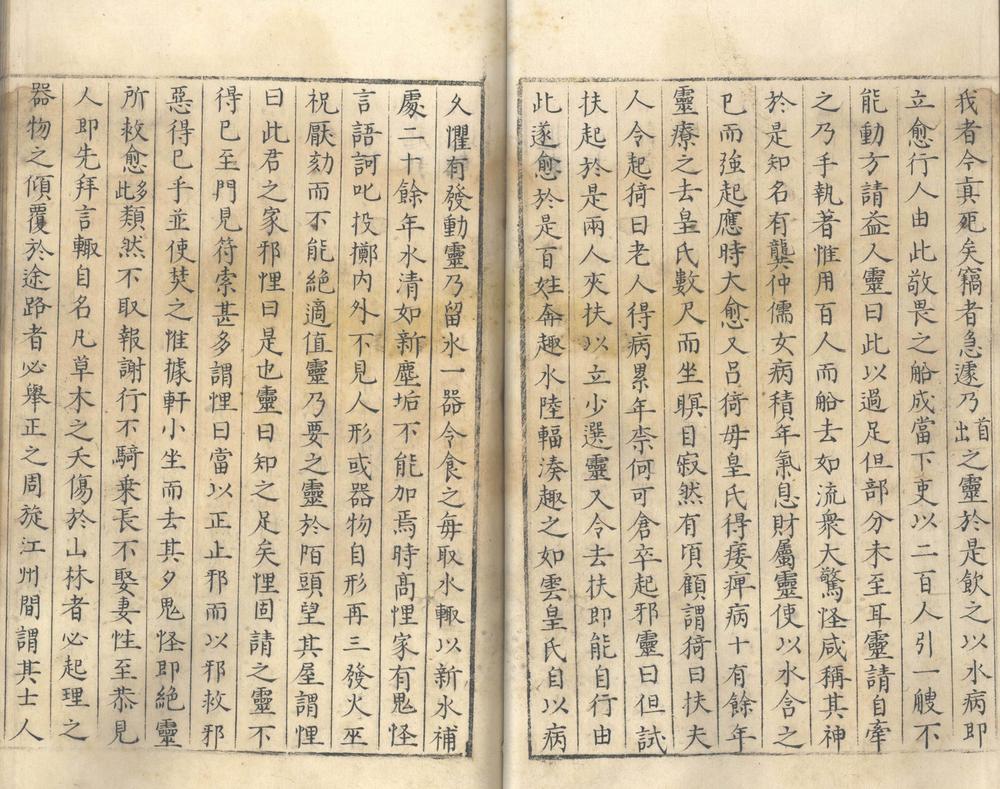 我者今真死矣竊者急遽乃首出之靈於是飲之以水病即
立愈行人由此敬畏之船成當下吏以二百人引一艘不
能動方請益人靈曰此以過足但部分未至耳靈請自牽
之乃手執著惟用百人而船去如流衆大驚怪咸稱其神
於是知名有龔仲儒女病積年氣息財屬靈使以水含之
已而強起應時大愈又呂猗毋皇氏得痿痺病十有餘年
靈療之去皇氏數尺而坐瞑目寂然有頃顧謂猗曰扶夫
人令起猗曰老人得病累年柰何可倉卒起邪靈曰但試
扶起於是兩人夾扶以立少選靈又令去扶即能自行由
此遂愈於是百姓奔趣水陸輻湊趣之如雲皇氏自以病
久懼有發動靈乃留水一器令食之每取水輒以新水補
處二十餘年水清如新塵垢不能加焉時高悝家有鬼怪
言語訶叱投擲內外不見人形或器物自形再三發火巫
祝厭劾而不能絶適值靈乃要之靈於陌頭望其屋謂悝
曰此君之家邪悝曰是也靈曰知之足矣悝固請之靈不
得已至門見符索甚多謂悝曰當以正止邪而以邪救邪
惡得已乎並使焚之惟據軒小坐而去其夕鬼怪即絶靈
所救愈多此類然不取報謝行不騎乗長不娶妻性至恭見
人即先拜言輒自名凡草木之夭傷於山林者必起理之
器物之傾覆於途路者必舉正之周旋江州間謂其士人